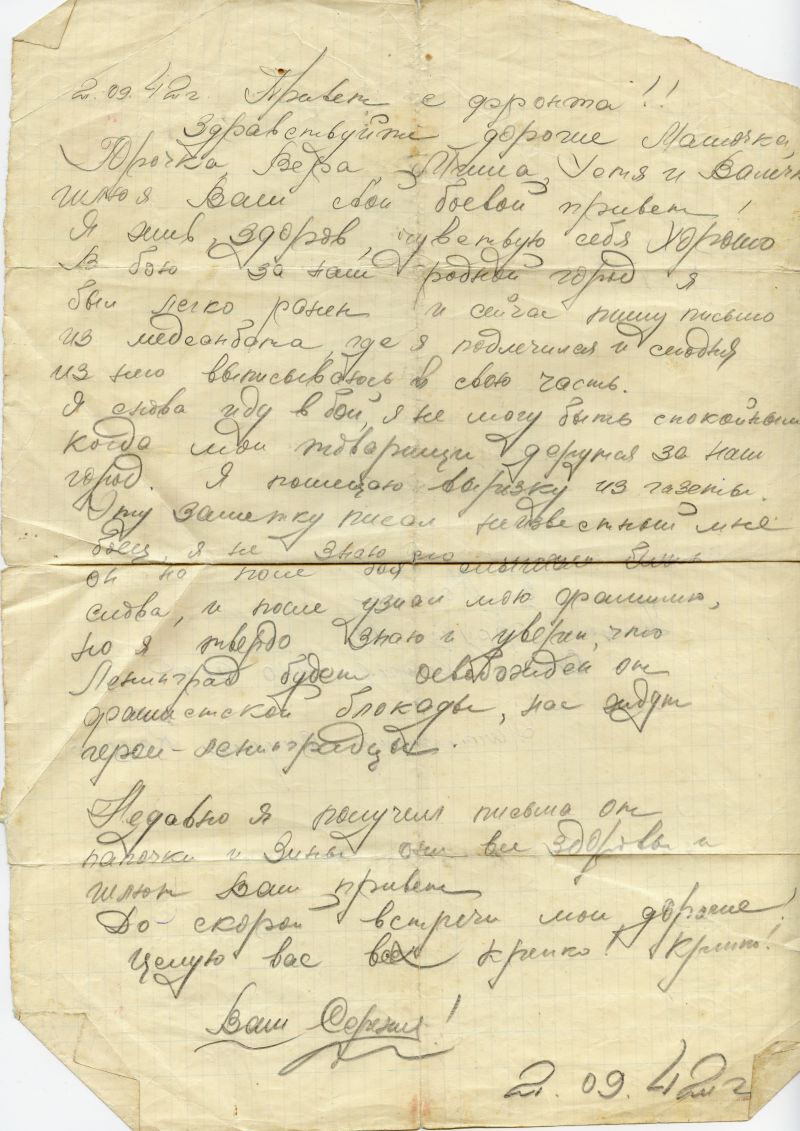 2.09.42 г. Привет с фронта!!
Здравствуйте дорогие Мамочка,
Юрочка, Вера, Миша, Устя и Валечк
шлю я Вам свой боевой привет!
Я жив, здоров, чувствую себя хорошо
В бою за наш родной город я
был легко ранен и сейчас пишу письмо
из медсанбата, где я подлечился и сегодня
из него выписываюсь в свою часть.
Я снова иду в бой, я не могу быть спокойным
когда мои товарищи дерутся за наш
город. Я помещаю вырезку из газеты.
Эту заметку писал неизвестный мне
боец, я не знаю
он на поле боя слышал
слова, и после узнал мою фамилию,
но я твердо знаю и уверен, что
Ленинград будет освобожден от
фашистской блокады, нас ждут
герои-ленинградцы.
Недавно я получил письма от
папочки и Зины они все здоровы и
шлют Вам привет
До скорой встречи мои дорогие!
Целую вас всех крепко! Крепко!
Ваш Сережа!
2. 09. 42 г